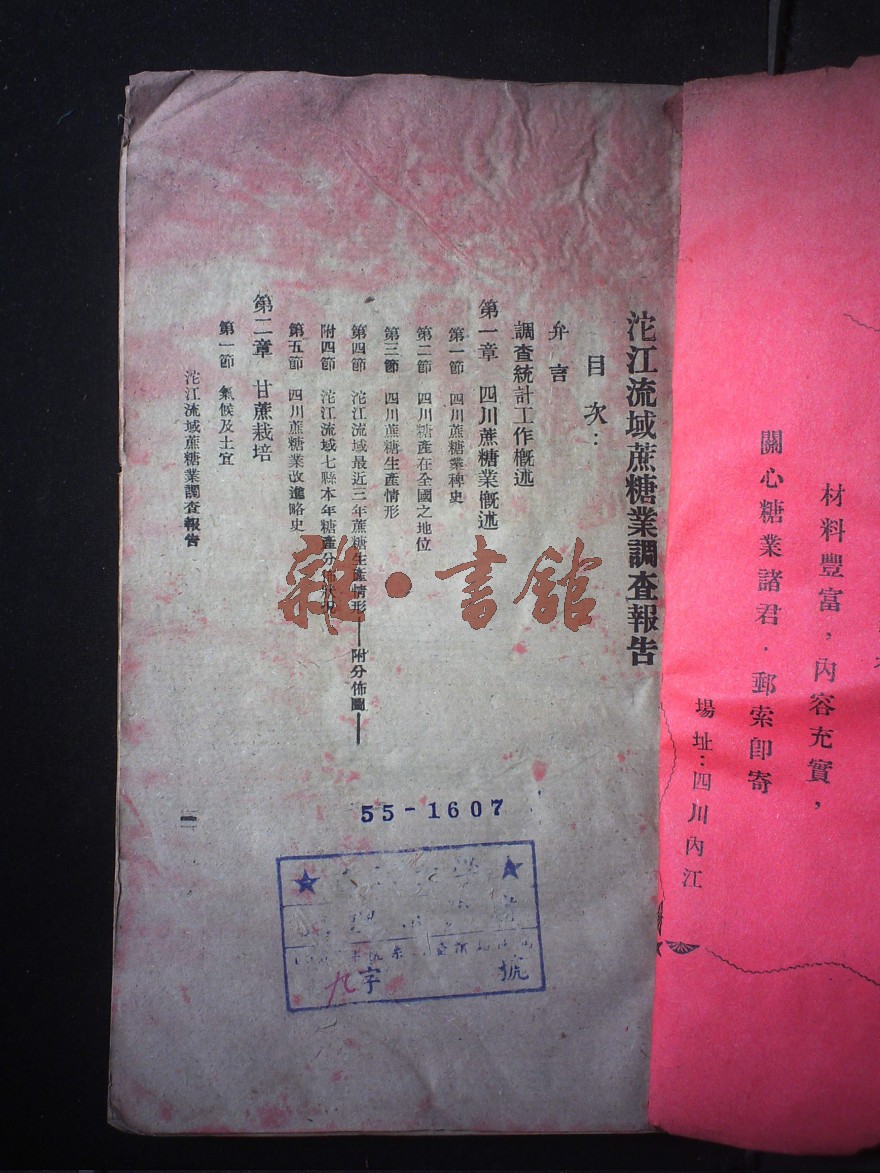 材料豐富，內容充實，
關心糖業諸君．郵索卽寄
場址：四川內江
沱江流域蔗糖業調查報告
目次：
弁言
調查統計工作概述
第一章 四川蔗糖業概述
第一節 四川蔗糖業稗史
第二節 四川糖產在全國之地位
第三節 四川蔗糖生產情形
第四節 沱江流域最近三年蔗糖生產情形——附分佈圖——
附四節 沱江流域七縣本年糖產分佈狀況
第五節 四川蔗糖業改進略史
第二章 甘蔗栽培
第一節 氣候及土宜
沱江流域蔗糖業調查報告
雜·書館
55-1607
九字 號